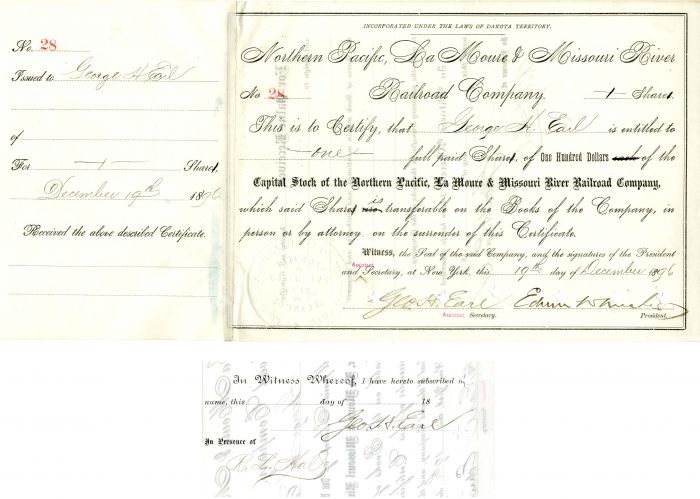 No. 28
Issued to George H Earl
of
For 1 Shares.
December 19th 1896
Received the above described Certificate.
INCORPORATED UNDER THE LAWS OF DAKOTA TERRITORY.
Northern Pacific, La Moure & Missouri River
No 28 Railroad Company. 1 Shares.
This is to Certify, that George H. Earl is entitled to
one full paid Shares, of One Hundred Dollars each of the
Capital Stock of the Northern Pacific, La Moure & Missouri River Railroad Company,
which said Shares is transferable on the Books of the Company, in
person or by attorney on the surrender of this Certificate.
Witness, the Seal of the said Company, and the signatures of the President
Assistant
and Secretary, at New York, this 19th day of December 1896
Geo. H. Earl Edwin
Assistant Secretary. President.
In Witness Whereof, I have hereto subscribed
name, this day of 18
Geo. H. Earl
In Presence of